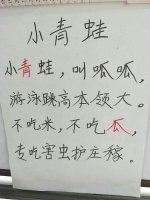 小青蛙
小青蛙，叫呱呱，
游泳跳高本领大。
不吃米，不吃瓜，
专吃害虫护庄稼。